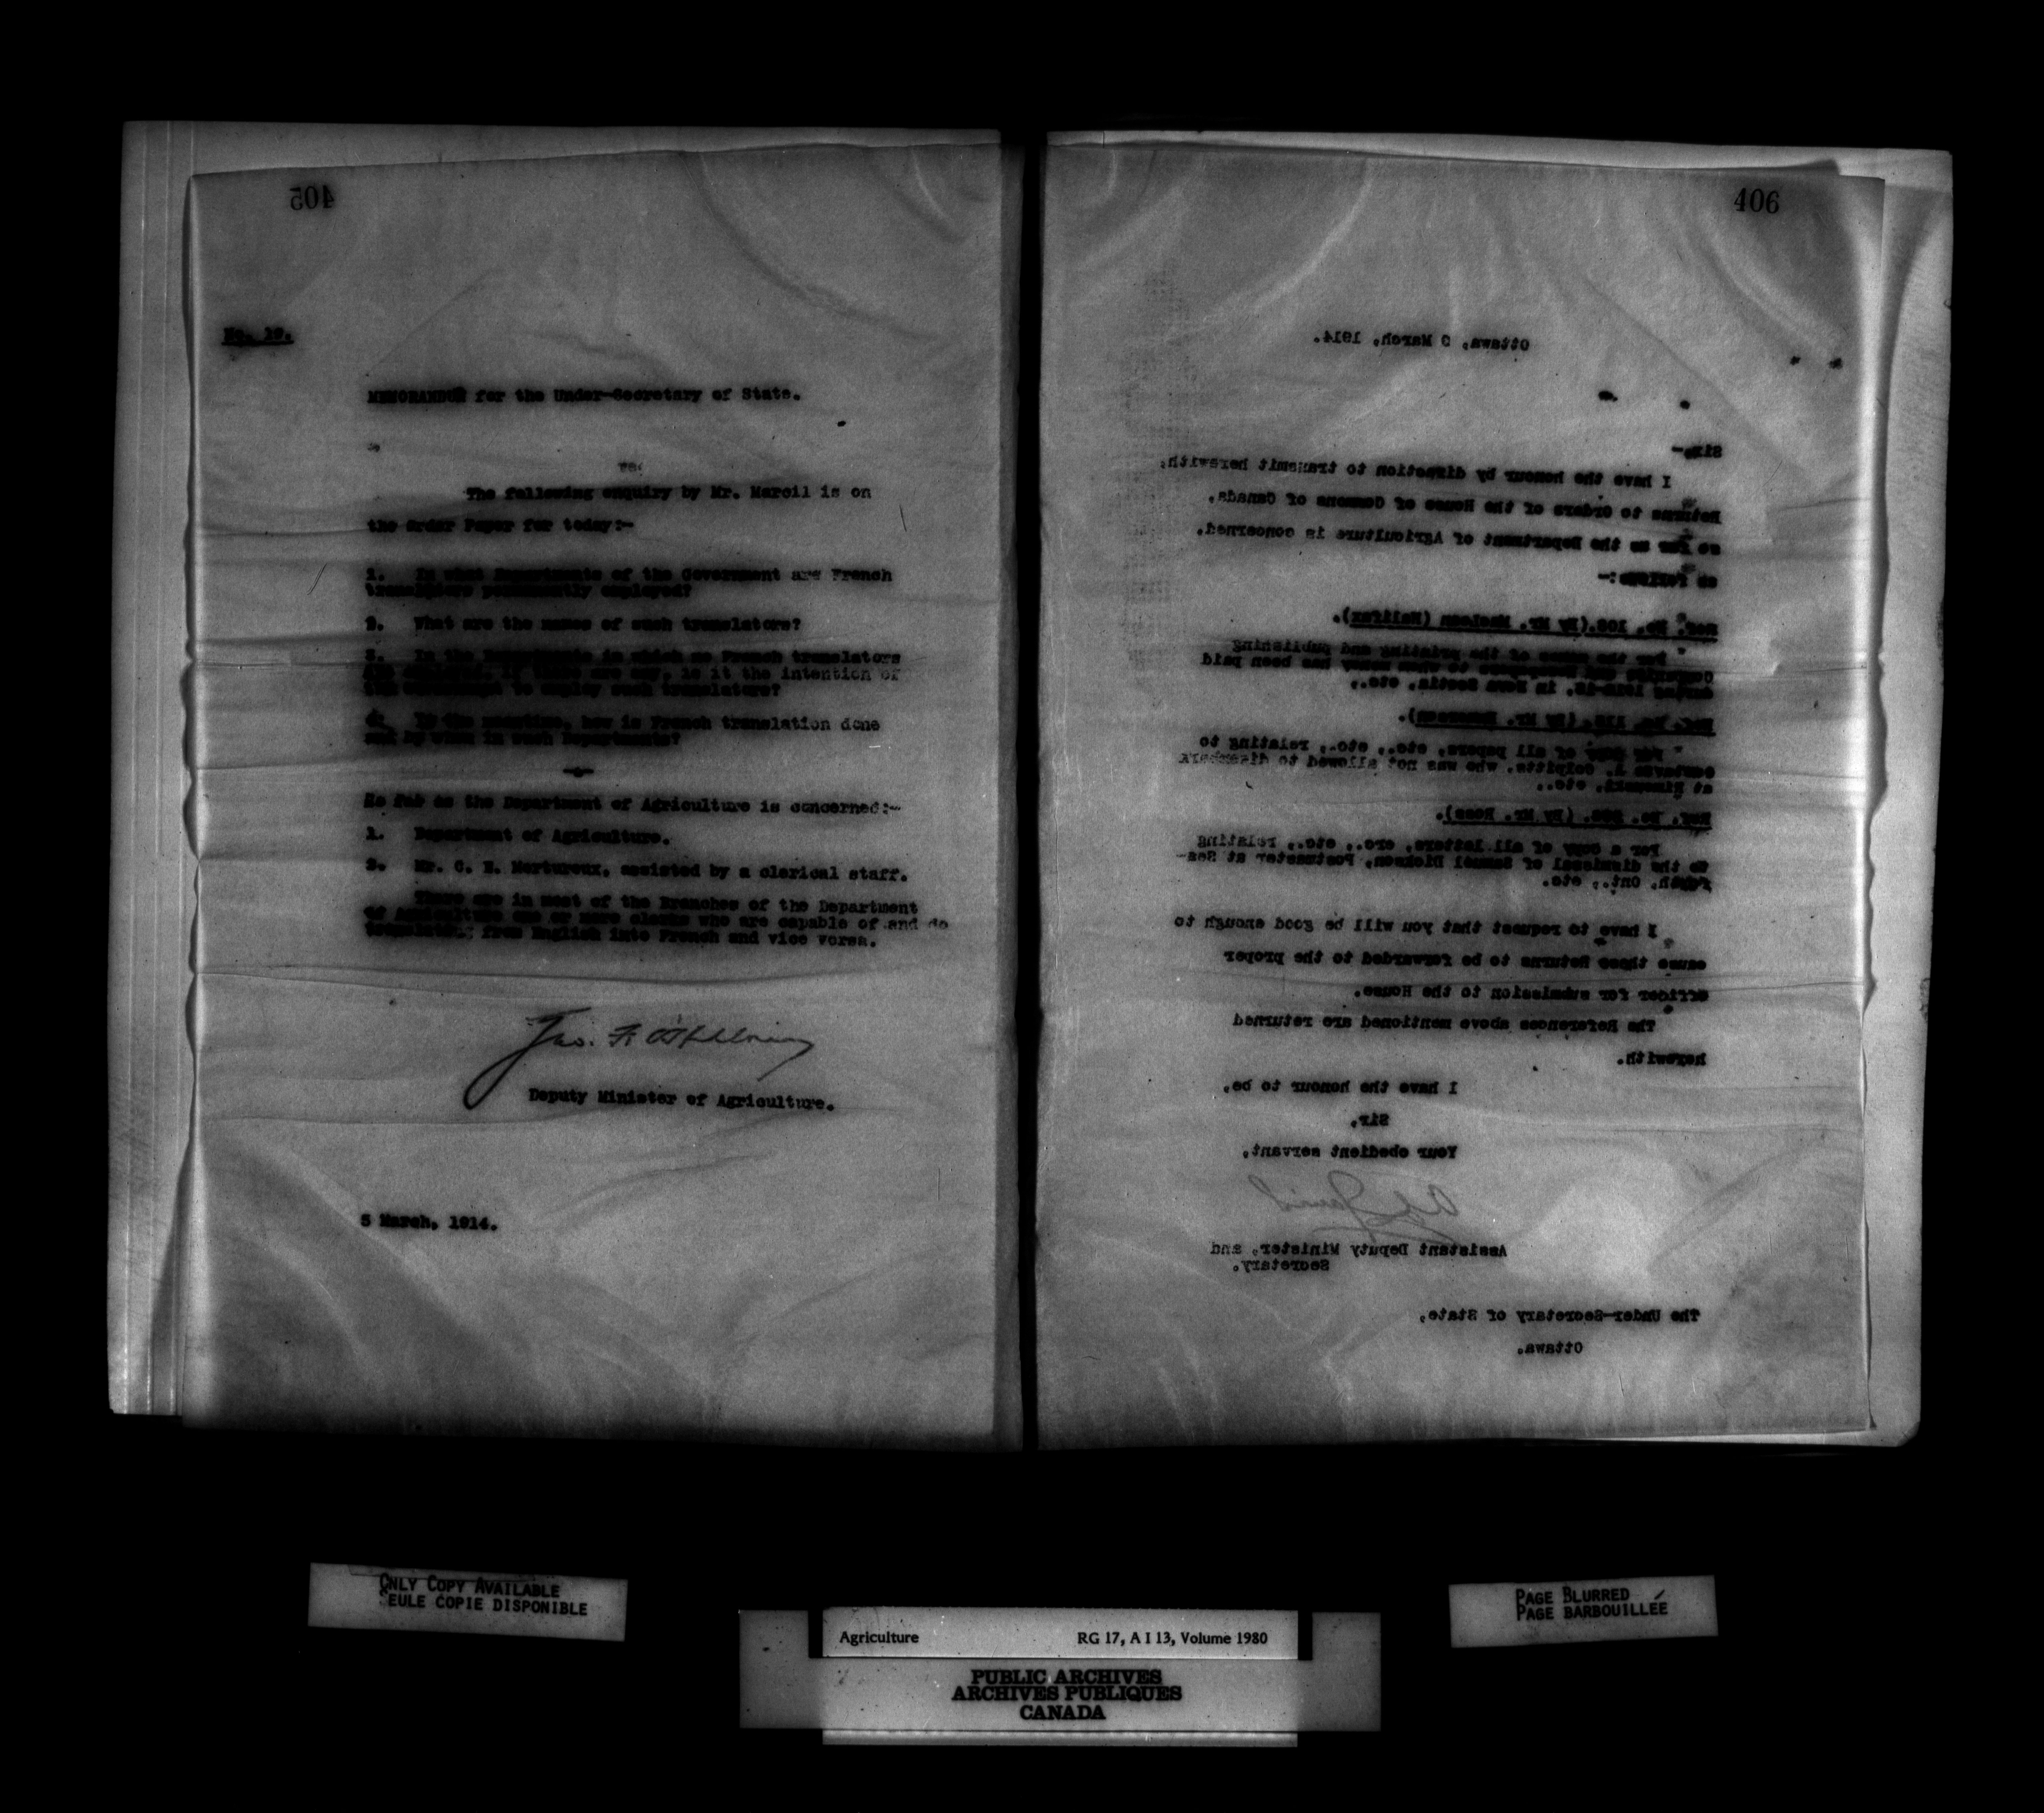 405
No. 19.
MEMORANDUM for the Under-Secretary of State.
The following enquiry by Mr. Marcil is on
the Order Paper for today:-
1. In what Departments of the Government are French
translators permanently employed?
2. What are the names of such translators?
3. In the Departments in which no French translators
are employed, if there are any, is it the intention of
the Government to employ such translators?
4. In the meantime, how is French translation done
and by whom in such Departments?
-o-
So far as the Department of Agriculture is concerned:-
1. Department of Agriculture.
2. Mr. C. E. Mortureux, assisted by a clerical staff.
There are in most of the Branches of the Department
of Agriculture one or more clerks who are capable of and do
translating from English into French and vice versa.
Deputy Minister of Agriculture.
5 March, 1914.
406
Ottawa, March, 1914.
Sir,-
I have the honour by direction to transmit herewith,
Returns to Orders of the House of Commons of Canada,
so far as the Department of Agriculture is concerned,
as follows:-
Ref. No. (By Mr. Maclean (Halifax).
For the names of the printing and publishing
Companies and newspapers to whom money has been paid
during 1912-13, in Nova Scotia, etc.,
Ref. No. (By Mr. ).
For copy of all papers, etc., etc., relating to
Colpitts, who was not allowed to disembark
at Rimouski, etc.,
Ref. No. (By Mr. Ross).
For a copy of all letters, etc., etc., relating
to the dismissal of Samuel Dickson, Postmaster at Sea-
forth, Ont., etc.
I have to request that you will be good enough to
cause these Returns to be forwarded to the proper
officer for submission to the House.
The References above mentioned are returned
herewith.
I have the honour to be,
Sir,
Your obedient servant,
Assistant Deputy Minister, and
Secretary.
The Under-Secretary of State,
Ottawa.
ONLY COPY AVAILABLE
SEULE COPIE DISPONIBLE
PAGE BLURRED
PAGE BARBOUILLÉE
Agriculture RG 17, A I 13, Volume 1980
PUBLIC ARCHIVES
ARCHIVES PUBLIQUES
CANADA